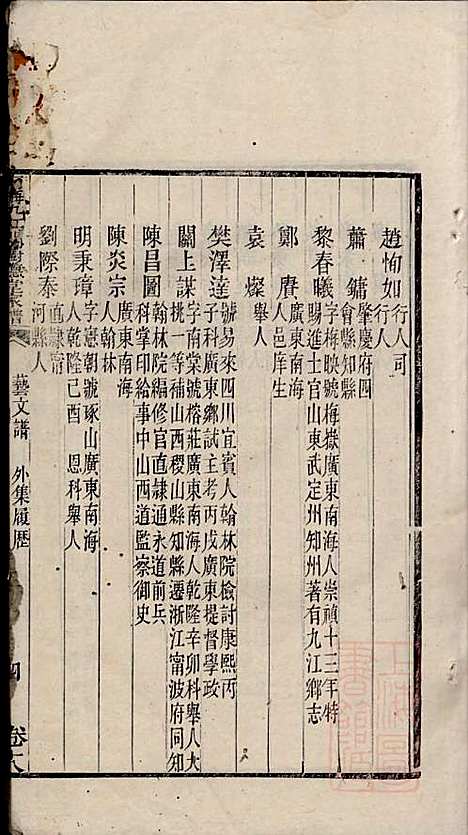 趙恂如行人司
行人
蕭鏞肇慶府四
會縣知縣
黎春曦字梅映號梅嶽廣東南海人崇禎十三年特
賜進士官山東武定州知州著有九江鄉志
鄭賡廣東南海
人邑庠生
袁燦舉人
樊澤達號易來四川宜賓人翰林院檢討康熙丙
子科廣東鄉試主考丙戌廣東提督學政
關上謀字南棠號榕莊廣東南海人乾隆辛卯科舉人大
挑一等補山西稷山縣知縣遷浙江甯波府同知
陳昌圖翰林院編修官直隷通永道前兵
科掌印給事中山西道監察御史
陳炎宗廣東南海
人翰林
明秉璋字憲朝號琢山廣東南海
人乾隆己酉 恩科舉人
劉際泰直隷甯
河縣人
藝文譜 外集履歷
四 卷十八